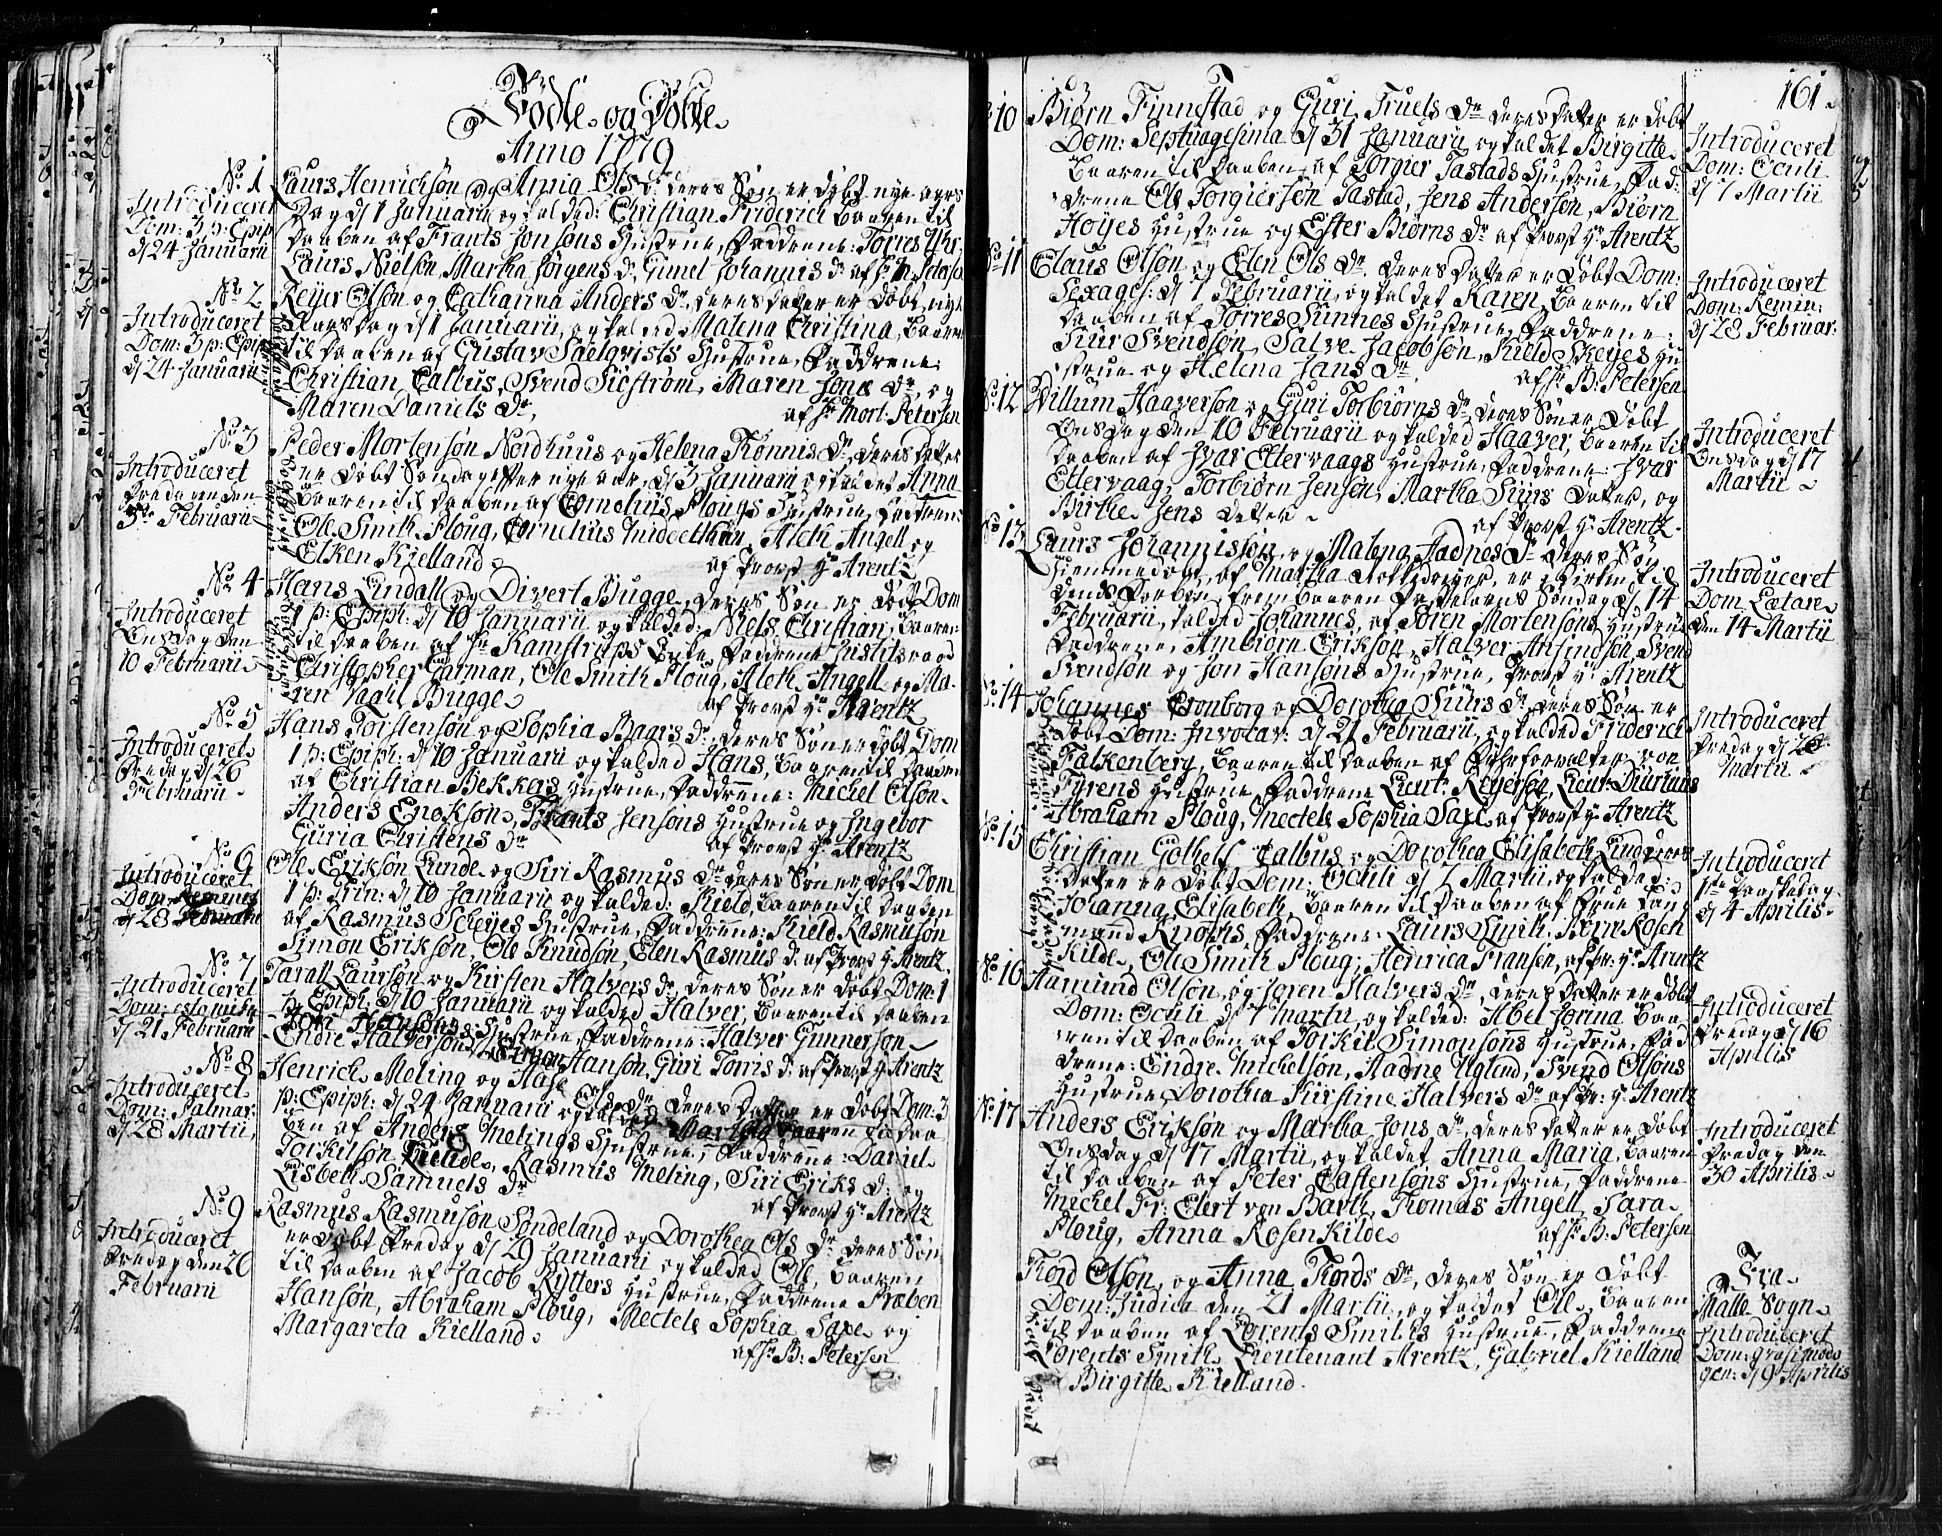 Födte og Döbte
Anno 1779
No 1
Introduceret
Dom: 3 p: Epip
d 24 Januarii
Laurs Henrichsön og Anna Ols Dr deres Sön er döbt nye aars
Dag d 1 Januarii og kalded: Christian Friderich baaren til
daaben af Frants Jonsöns Hustrue, Faddrene: Torres
Laurs Nielsön, Martha Jörgens dr, Gunel Johannis dr af Hr
No 2
Introduceret
Dom: 3 p: Epip
d 24 Januarii
Reyer Olsön og Catharina Anders Dr, deres datter er döbt nye
Aarsdag d 1 Januarii, og kalded Malena Christina, baaren
til daaben af Gustav Saelqvists Hustrue, Faddrene
Christian Calbus, Svend Siöström, Maren Jona Dr, og
Maren Daniels Dr, af Hr Mort: Petersen
No 3
Introduceret
Fredagen den
5te Februarii
Peder Mortensön Nordhuus og Helena Tönnis Dr, deres datter
er döbt Söndag efter nye aar, d 3 Januarii og kaldet Anna
baaren til daaben af Cornelius Plougs Hustrue, Faddrene:
Ole Smith Ploug, Cornelius Middelthun, Aleth Angell og
Elken Kielland af Provst Hr Arentz
No 4
Introduceret
Onsdag den
10 Februarii
Hans Lindall og Divert Bugge, deres Sön er döbt Dom
1 p: Epiph: d 10 Januarii og kaldet: Niels Christian, baaren
til daaben af Hr Kamstrups Enke, Faddrene Justitsraad
Christopher Garman, Ole Smith Ploug, Aleth Angell og Ma-
ren Vaahl Bugge af Provst Hr Arentz
No 5
Introduceret
Fredag d 26
Februarii
Hans Torstensön og Sophia Baars Dr, deres Sön er döbt Dom
1 p: Epiph: d 10 Januarii og kaldet Hans, baaren til daaben
af Christian Bekkers Hustrue, Faddrene: Michel Olsön
Anders Enoksön, Frants Jensöns Hustrue og Ingebor
Guria Christens Dr af Provst Hr Arentz
No 6
Introduceret
Dom: Remini
d 28 Februarii
Ole Eriksön Lunde og Siri Rasmus Dr deres Sön er döbt Dom
1 p: Trin: d 10 Januarii og kaldet: Kield, baaren til daaben
af Rasmus Scheyes Hustrue, Faddrene: Kield Rasmusön
Simon Eriksön, Ole Knudsön, Elen Rasmus Dr af Provst Hr Arentz
No 7
Introduceret
Dom: estomihi
d 21 Februarii
Tarall Laursön og Kirsten Halvers Dr, deres Sön er döbt Dom: 1
p: Epiph: d 10 Januarii og kaldet Halver, baaren til daaben
Hansöns Hustrue, Faddrene: Halver Gunnersön
Endre Halversön, Simon Hansön, Guri Torris Dr af Provst Hr Arentz
No 8
Introduceret
Dom: Palmar:
d 28 Martii,
Henrich Meling og Hase
Ols Dr deres datter er döbt Dom: 3
p: Epiph: d 24 Januarii og kaldet Martha baaren til daa
ben af Anders Melings Hustrue, Faddrene: Daniel
Torkilsön, Rasmus Meling, Siri Eriks Dr og
Lisbeth Samuels Dr af Provst Hr Arentz
No 9
Introduceret
Fredag den 26
Februarii
Rasmus Rasmusön Söndeland og Dorothea Ols Dr deres Sön
er döbt Fredag d 29 Januarii og kaldet Ole, baaren
til daaben af Jacob Rytters Hustrue, Faddrene Præben
Hansön, Abraham Ploug, Mectele Sophia Saxe og
Margareta Kielland. af Hr B: Petersen
161
No 10
Biörn Finnestad og Guri Truels Dr deres datter er döbt
Dom: Septuagesima d 31 Januarii og kaldet Birgitte
baaren til daaben af Torgier Tastads Hustrue, Fad-
drene Ole Torgiersön Tastad, Jens Andersön, Biörn
Höyes Hustrue og Ester Biörns Dr af Provst Hr Arentz
Introduceret
Dom: Oculi
d 7 Martii
No 11
Claus Olsön og Elen Ols Dr deres datter er döbt Dom:
Sexages: d 7 Februarii, og kaldet Karen, baaren til
daaben af Torres Sunnes Hustrue, Faddrene:
Siur Svendsön, Salve Jacobsön, Kield Skeyes Hu
strue og Helena Jans Dr af Hr B: Petersen
Introduceret
Dom: Remin:
d 28 Februar:
No 12
Willum Haaversön og Guri Torbiörns Dr, deres Sön er döbt
Onsdag den 10 Februarii og kaldet Haaver, baaren til
daaben af Ivar Ettervaags Hustrue, Faddrene: Ivar
Ettervaag, Torbiörn Jensön, Martha Siurs datter, og
Birthe Jens datter af Provst Hr Arentz
Introduceret
Onsdag d 17
Martii
No 13
Laurs Johannissön og Malena Aadnes Dr deres Sön
hiemmedöbt af Martha, er i Kirken til
dends daaben frembaaren Fastelavns Söndag d 14
Februarii, kaldet Johannes, af Sören Mortensöns Hustrue
Faddrene, Ambiörn Eriksön, Halver Ansindsön Svend
Svendsön og Jon Hansöns Hustrue, Provst Hr Arentz
Introduceret
Dom Lætare
den 14 Martii
No 14
Johannes Cronborg og Dorothea Siurs Dr, deres Sön er
döbt Dom: Invocav: d 21 Februarii, og kaldet Friderich
Falkenberg, baaren til daaben af Fyhrforvalter von
Fyrens Hustrue Faddrene Lieut: Reyersen, Lieut: Duurhuus
Abraham Ploug, Mectele Sophia Saxe af Provst Hr Arentz
Introduceret
Fredag d 26
Martii
No 15
Christian Gölhelf Calbus og Dorothea Elisabeth Lind deres
datter er döbt Dom: Oculi d 7 Martii, og kaldet:
Johanna Elisabeth, baaren til daaben af Frue Lang
mannd Knophs, Faddrene: Laurs Smith, Bern Rosen
Kilde, Ole Smith Ploug, Henrica Fransen, af Pr: Hr Arentz
Introduceret
1te Paaskedag
d 4 Aprilis
No 16
Aamund Olsön, og Joren Halvers Dr, deres datter er döbt
Dom: Oculi d 7 Martii, og kaldet: Abel Jorina baa
ren til daaben af Torkil Simonsöns Hustrue, Fad
drene: Endre Michelsön, Aadne Ugland, Svend Olsöns
Hustrue, Dorothea Kirstine Halvers Dr af Pr: Hr Arentz
Introduceret
Fredag d 16
Aprilis
No 17
Anders Eriksön og Martha Jons Dr, deres datter er döbt
Onsdag d 17 Martii, og kaldet Anna Maria, baaren
til daaben af Peter Castensöns Hustrue, Faddrene
Michel Fr: Elert von Barth, Thomas Angell, Sara
Ploug, Anna Rosenkilde af Hr B: Petersen
Introduceret
Fredag den
30 Aprilis
Tord Olsön, og Anna Tords Dr, deres Sön er döbt
Dom: Judica den 21 Martii, og kaldet Ole, baaren
til daaben af Lorents Smiths Hustrue, Faddrene
Lorents Smith, Lieutenant Arentz, Gabriel Kielland
Birgitte Kielland.
Fra
Malle Sogn
Introduceret
Dom: qvasimodo
gen: d 9 Aprilis